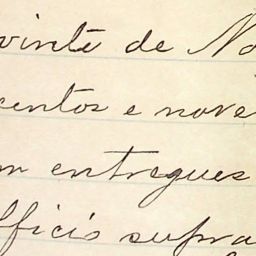 vinte de No
centos e nove
m entregues
fficio supra